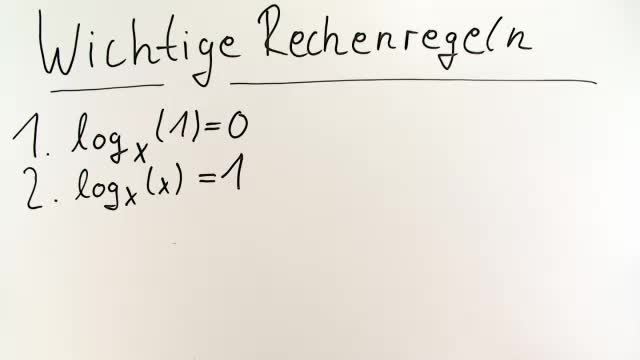 Wichtige Rechenregeln
1. logₓ(1)=0
2. logₓ(x)=1